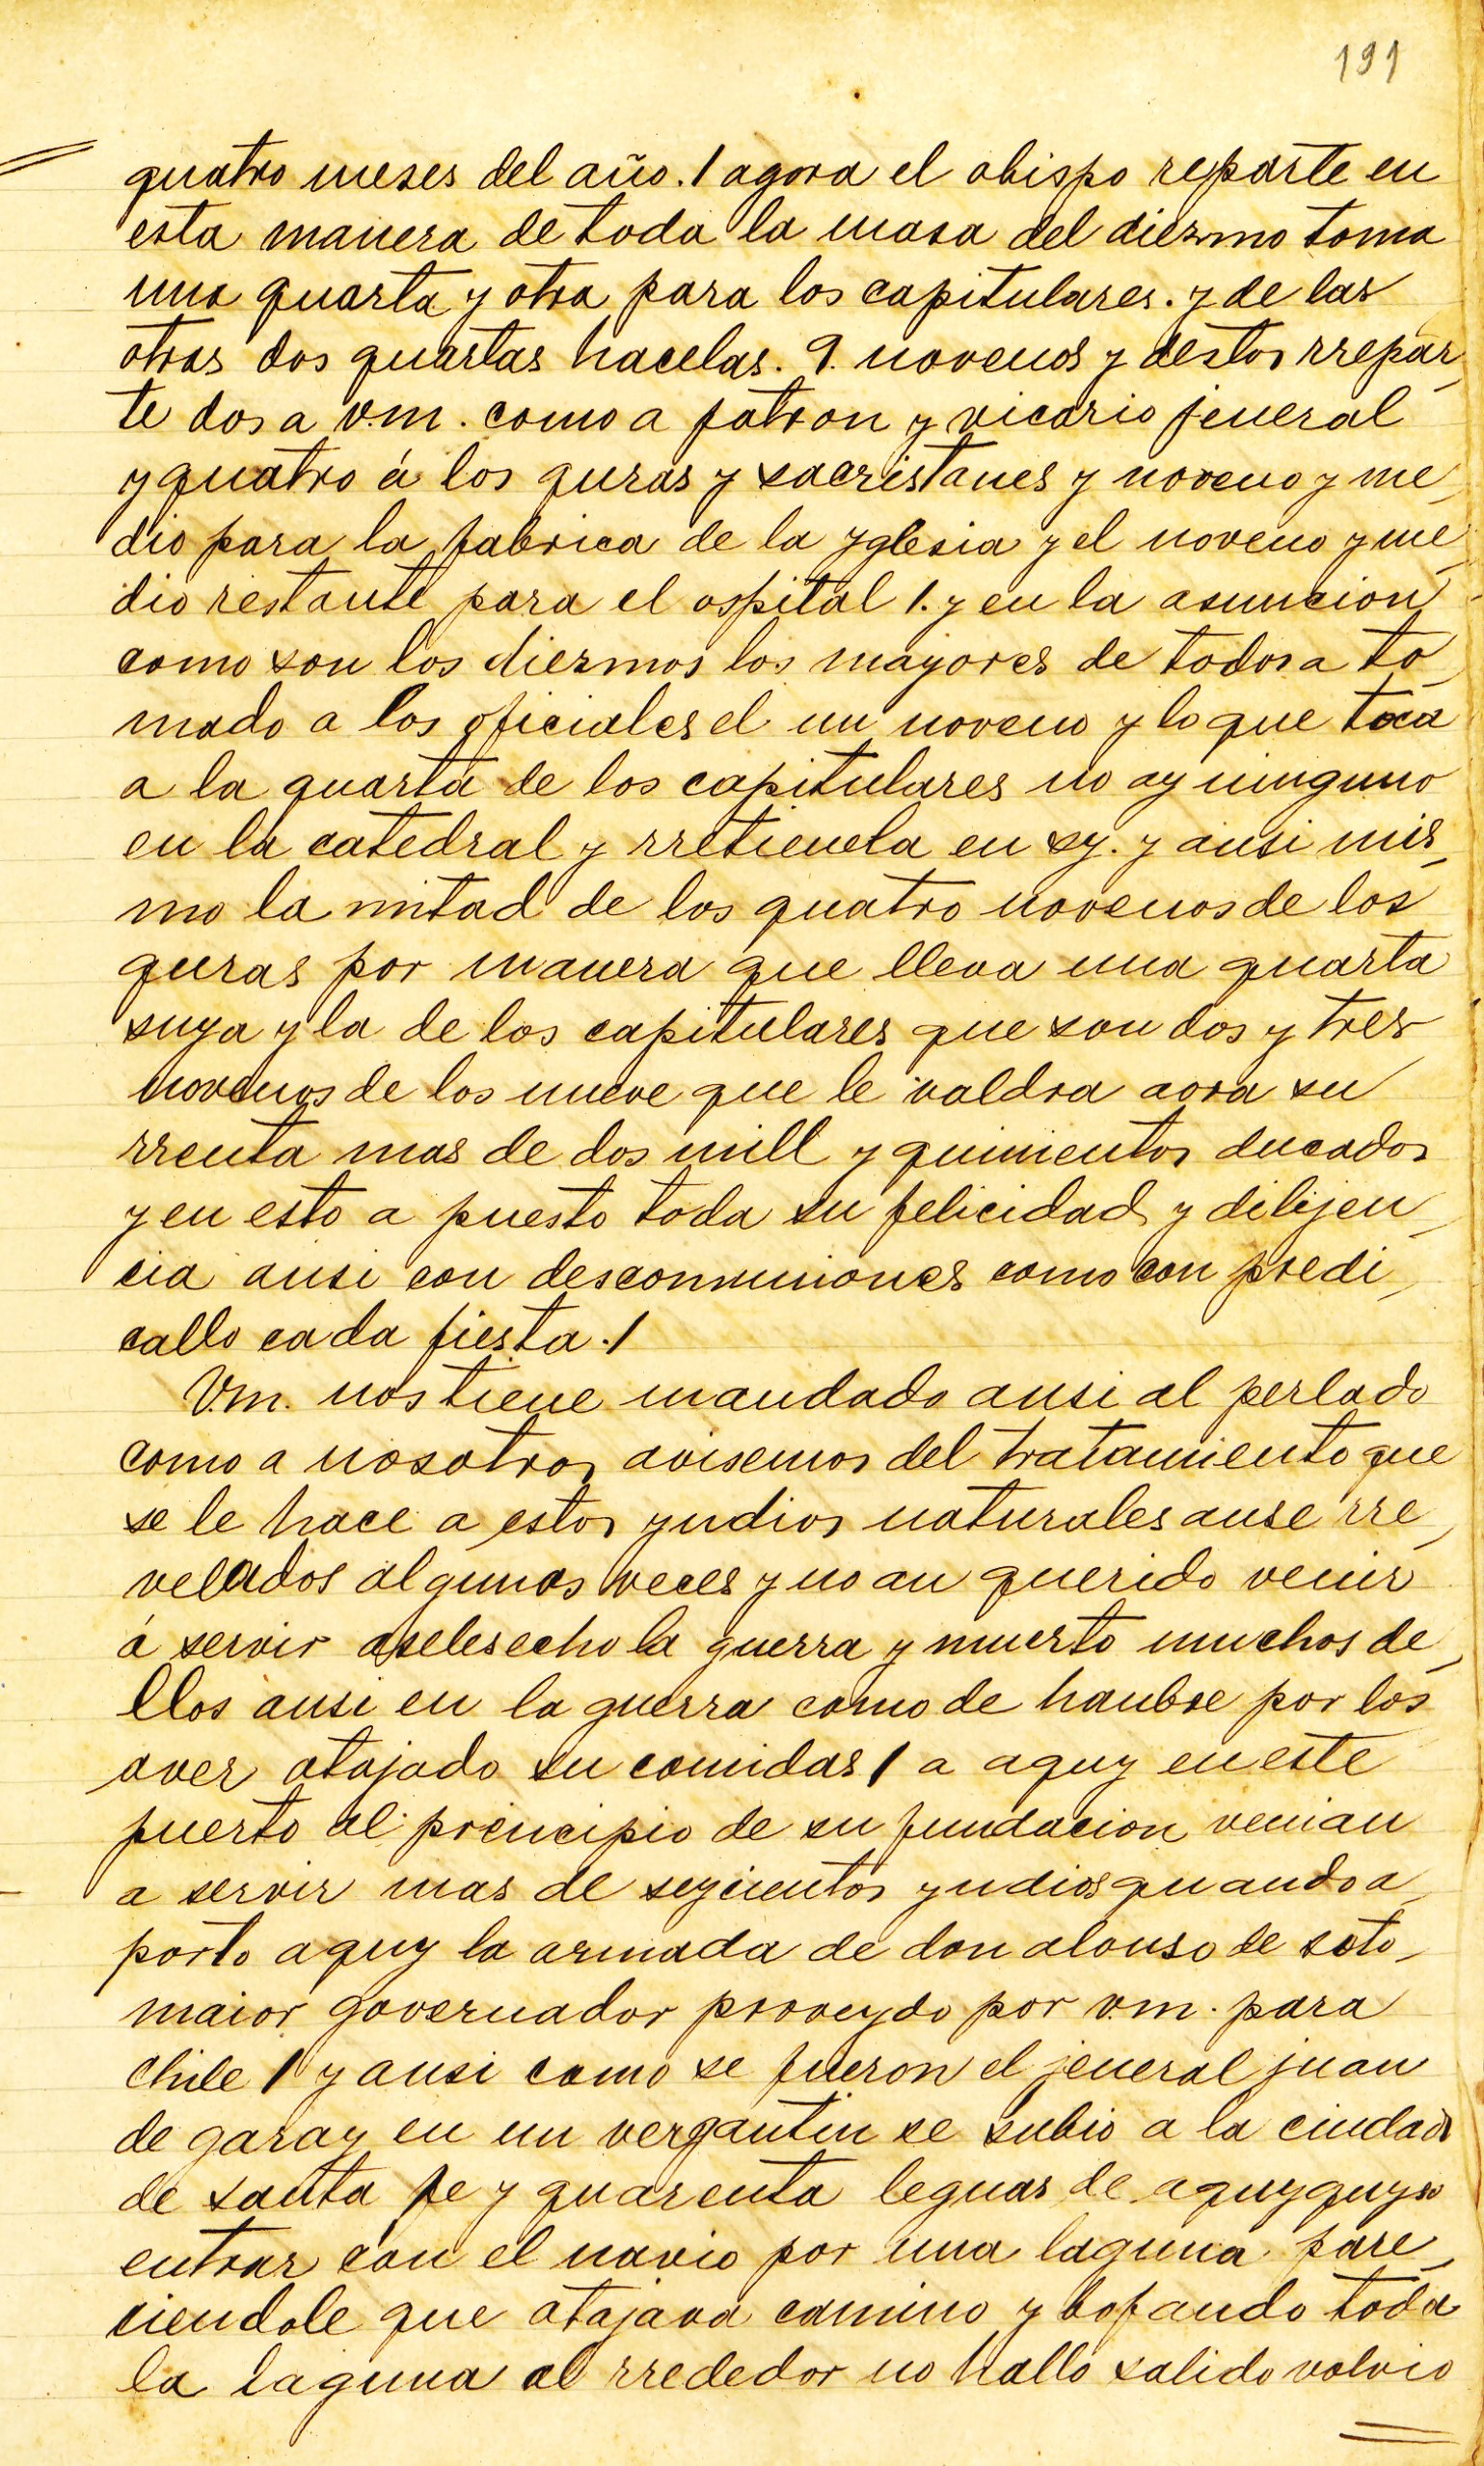 191
quatro meses del año. / agora el obispo reparte en
esta manera de toda la masa del diezmo toma
una quarta y otra para los capitulares. y de las
otras dos quartas hacelas. 9. novenos y destos rrepar
te dos a v.m. como a patron y vicario jeneral
y quatro á los quras y sacristanes y noveno y me
dio para la fabrica de la yglesia y el noveno y me
dio restante para el ospital /. y en la asuncion
como son los diezmos los mayores de todos a to
mado a los oficiales el un noveno y lo que toca
a la quarta de los capitulares no ay ninguno
en la catedral y rretienela en sy. y ansi mis
mo la mitad de los quatro novenos de los
quras por manera que lleva una quarta
suya y la de los capitulares que son dos y tres
novenos de los nueve que le valdra aora su
rrenta mas de dos mill y quinientos ducados
y en esto a puesto toda su felicidad y dilijen
cia ansi con descomuniones como con predi
callo cada fiesta ./
V.m. nos tiene mandado ansi al perlado
como a nosotros avisemos del tratamiento que
se le hace a estos yndios naturales anse rre
velados algunas veces y no an querido venir
á servir aselesecho la guerra y muerto muchos de
llos ansi en la guerra como de hanbre por los
aver atajado su comidas / a aquy en este
puerto al principio de su fundacion venian
a servir mas de seycientos yndios quando a
porto aquy la armada de don alonso de soto
maior governador proveydo por v.m. para
chile / y ansi como se fueron el jeneral juan
de garay en un vergantin se subio a la ciudad
de santa fe y quarenta leguas de aquy quyso
entrar con el navio por una laguna pare
ciendole que atajava camino y bojando toda
la laguna al rrededor no hallo salida volvio